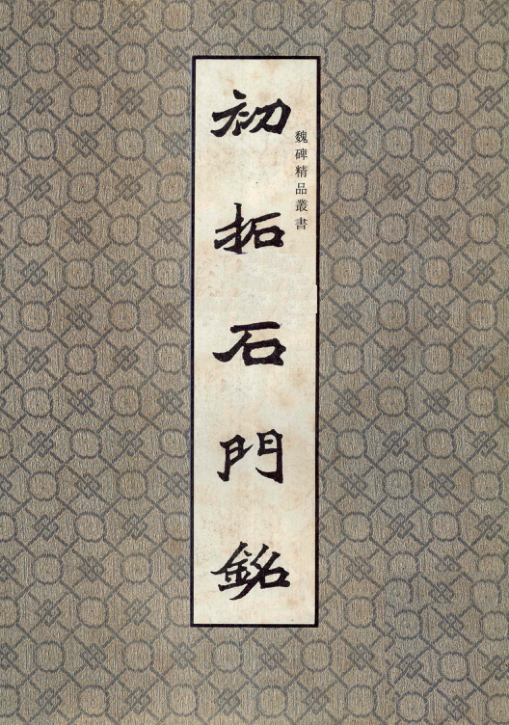 魏碑精品叢書
初拓石門銘